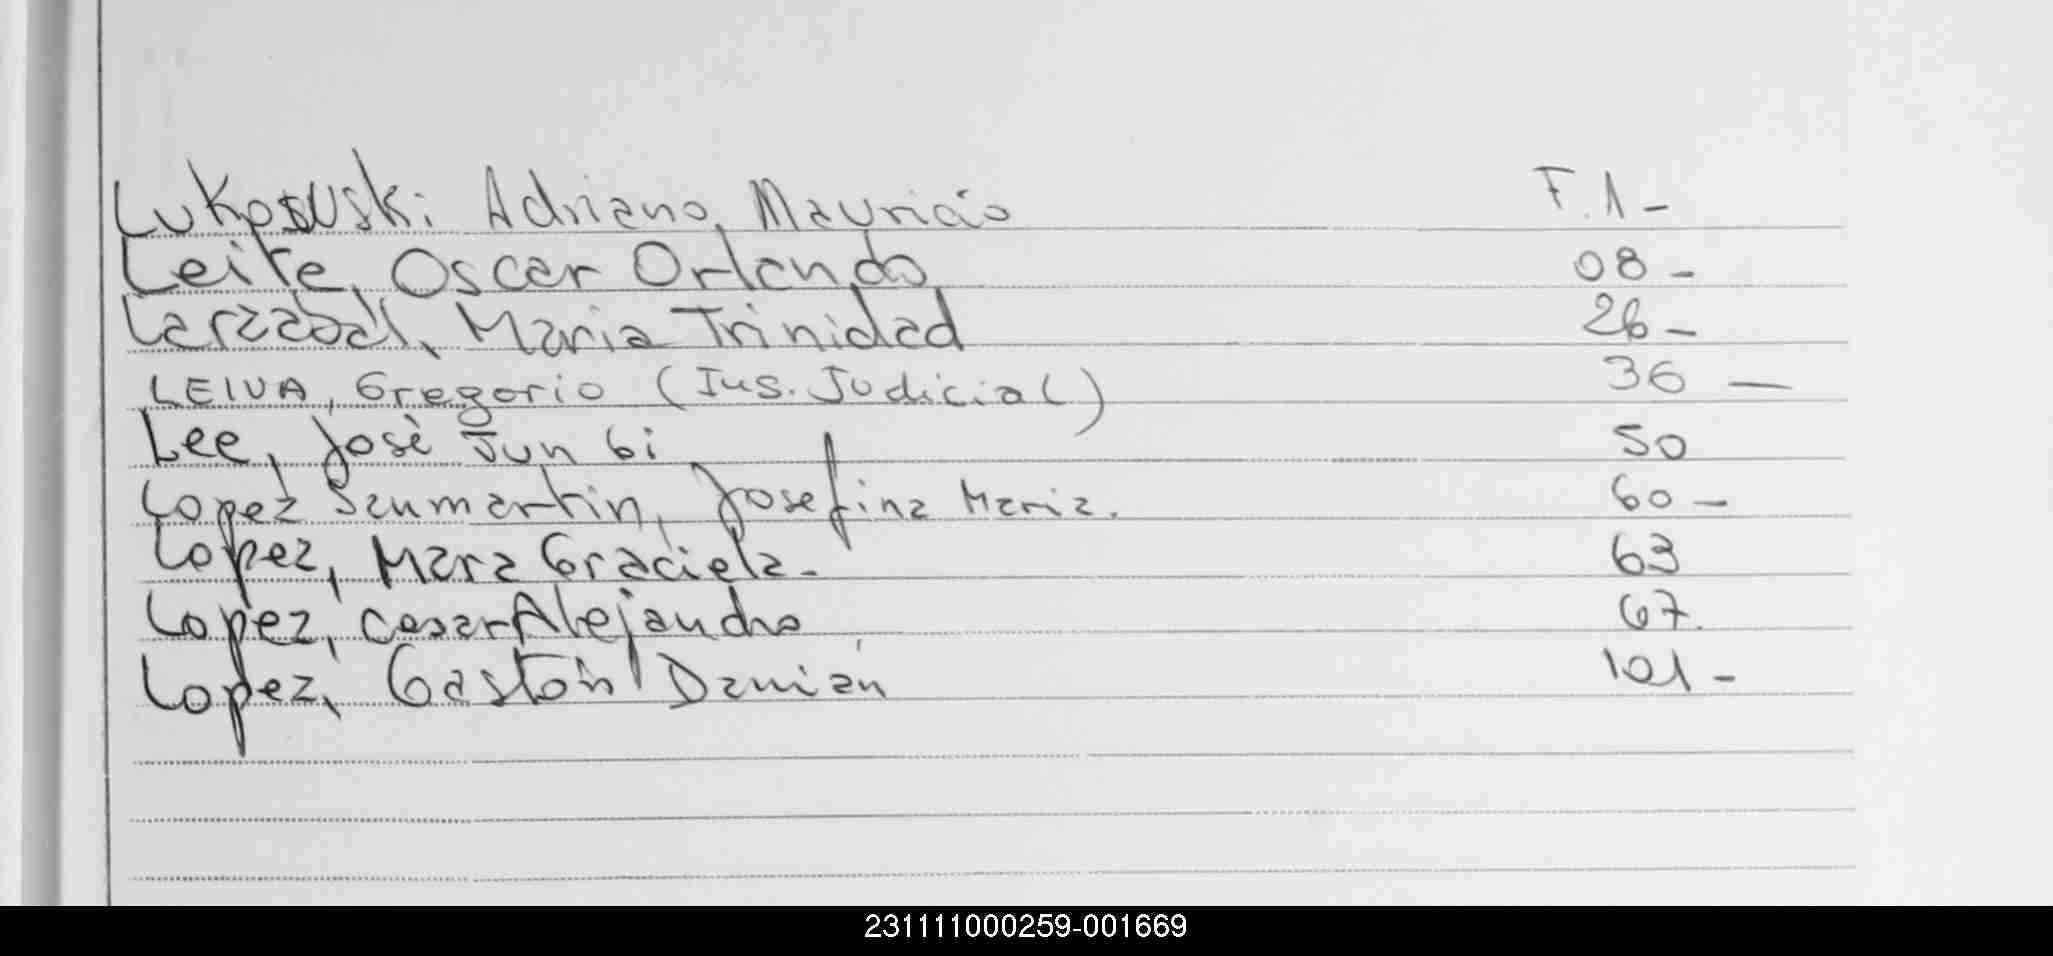 Lukosuski Adriano, Mauricio F.1-
Leite, Oscar Orlando 08-
Larzabal, Maria Trinidad 26-
LEIVA, Gregorio (Ins. Judicial) 36 -
Lee, José Jun bi 50
Lopez Sanmartin, Josefina Maria. 60-
Lopez, Mara Graciela- 63
Lopez, Cesar Alejandro 67.
Lopez, Gastón Damián 101-
231111000259-001669